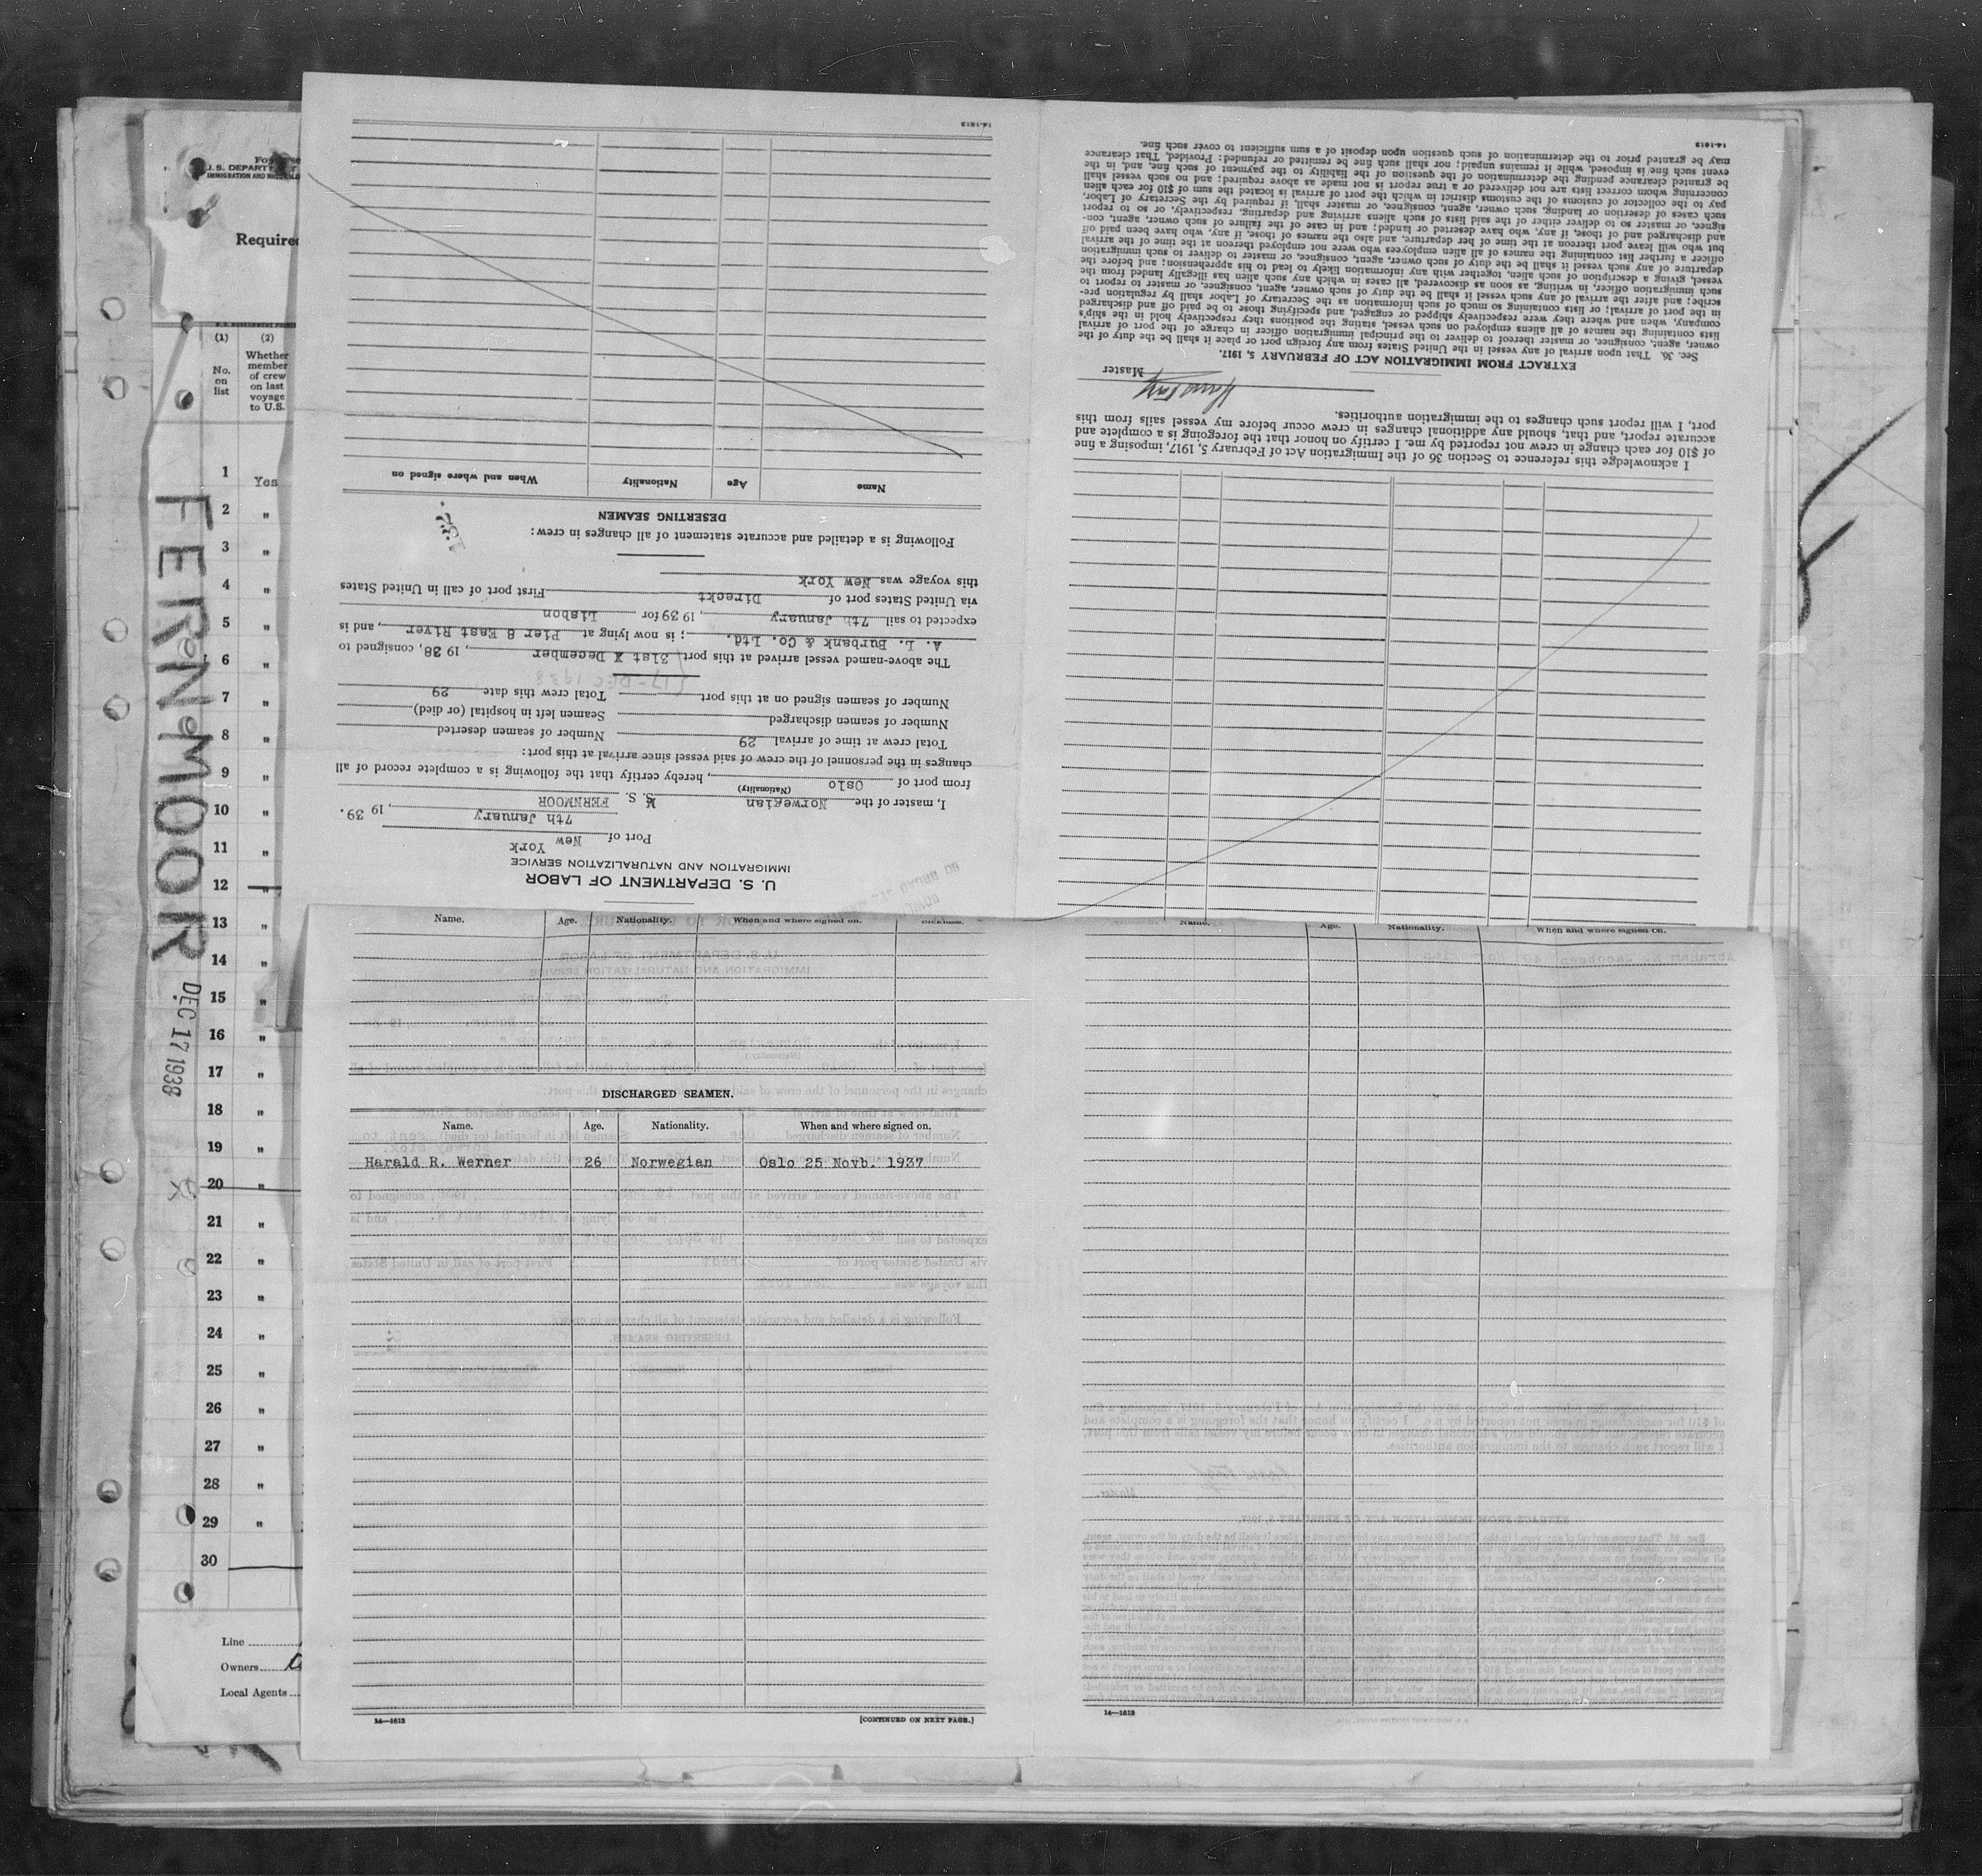 U.S. DEPART
IMMIGRATION AND
Required
(1)
(2)
No.
on
list
Whether
member
of crew
on last
voyage
to U.S.
1 Yes
2 "
3 "
4 "
5 "
6 "
7 "
8 "
9 "
10 "
11 "
12 "
13 "
14 "
15 "
16 "
17 "
18 "
19 "
20 "
21 "
22 "
23 "
24 "
25 "
26 "
27 "
28 "
29 "
30
Line
Owners
Local Agents
FERNMOOR
DEC 17 1938
U. S. DEPARTMENT OF LABOR
IMMIGRATION AND NATURALIZATION SERVICE
Port of New York
7th January, 1939.
I, master of the Norwegian M S. S. FERNMOOR
(Nationality)
from port of Oslo, hereby certify that the following is a complete record of all
changes in the personnel of the crew of said vessel since arrival at this port:
Total crew at time of arrival 29 Number of seamen deserted
Number of seamen discharged Seamen left in hospital (or died)
Number of seamen signed on at this port Total crew this date 29
(17-DEC 1938
The above-named vessel arrived at this port 31st December, 1938, consigned to
A. L. Burbank & Co. Ltd. ; is now lying at Pier 8 East River, and is
expected to sail 7th January, 1939 for Lisbon
via United States port of Direckt First port of call in United States
this voyage was New York
Following is a detailed and accurate statement of all changes in crew:
DESERTING SEAMEN
Name Age Nationality When and where signed on
14-1613
I acknowledge this reference to Section 36 of the Immigration Act of February 5, 1917, imposing a fine
of $10 for each change in crew not reported by me. I certify on honor that the foregoing is a complete and
accurate report, and that, should any additional changes in crew occur before my vessel sails from this
port, I will report such changes to the immigration authorities.
Master
EXTRACT FROM IMMIGRATION ACT OF FEBRUARY 5, 1917.
Sec. 36. That upon arrival of any vessel in the United States from any foreign port or place it shall be the duty of the
owner, agent, consignee, or master thereof to deliver to the principal immigration officer in charge of the port of arrival
lists containing the names of all aliens employed on such vessel, stating the positions they respectively hold in the ship's
company, when and where they were respectively shipped or engaged, and specifying those to be paid off and discharged
in the port of arrival; or lists containing so much of such information as the Secretary of Labor shall by regulation pre-
scribe; and after the arrival of any such vessel it shall be the duty of such owner, agent, consignee, or master to report to
such immigration officer, in writing, as soon as discovered, all cases in which any such alien has illegally landed from the
vessel, giving a description of such alien, together with any information likely to lead to his apprehension; and before the
departure of any such vessel it shall be the duty of such owner, agent, consignee, or master to deliver to such immigration
officer a further list containing the names of all alien employees who were not employed thereon at the time of the arrival
but who will leave port thereon at the time of her departure, and also the names of those, if any, who have been paid off
and discharged and of those, if any, who have deserted or landed; and in case of the failure of such owner, agent, con-
signee, or master so to deliver either of the said lists of such aliens arriving and departing, respectively, or so to report
such cases of desertion or landing, such owner, agent, consignee, or master shall, if required by the Secretary of Labor,
pay to the collector of customs of the customs district in which the port of arrival is located the sum of $10 for each alien
concerning whom correct lists are not delivered or a true report is not made as above required; and no such vessel shall
be granted clearance pending the determination of the question of the liability to the payment of such fine, and, in the
event such fine is imposed, while it remains unpaid; nor shall such fine be remitted or refunded: Provided, That clearance
may be granted prior to the determination of such question upon deposit of a sum sufficient to cover such fine.
14-1613
Name. Age. Nationality. When and where signed on.
DISCHARGED SEAMEN.
Name. Age. Nationality. When and where signed on.
Harald R. Werner 26 Norwegian Oslo 25 Novb. 1937
14—1613
[CONTINUED ON NEXT PAGE.]
Name. Age. Nationality. When and where signed on.
14—1613